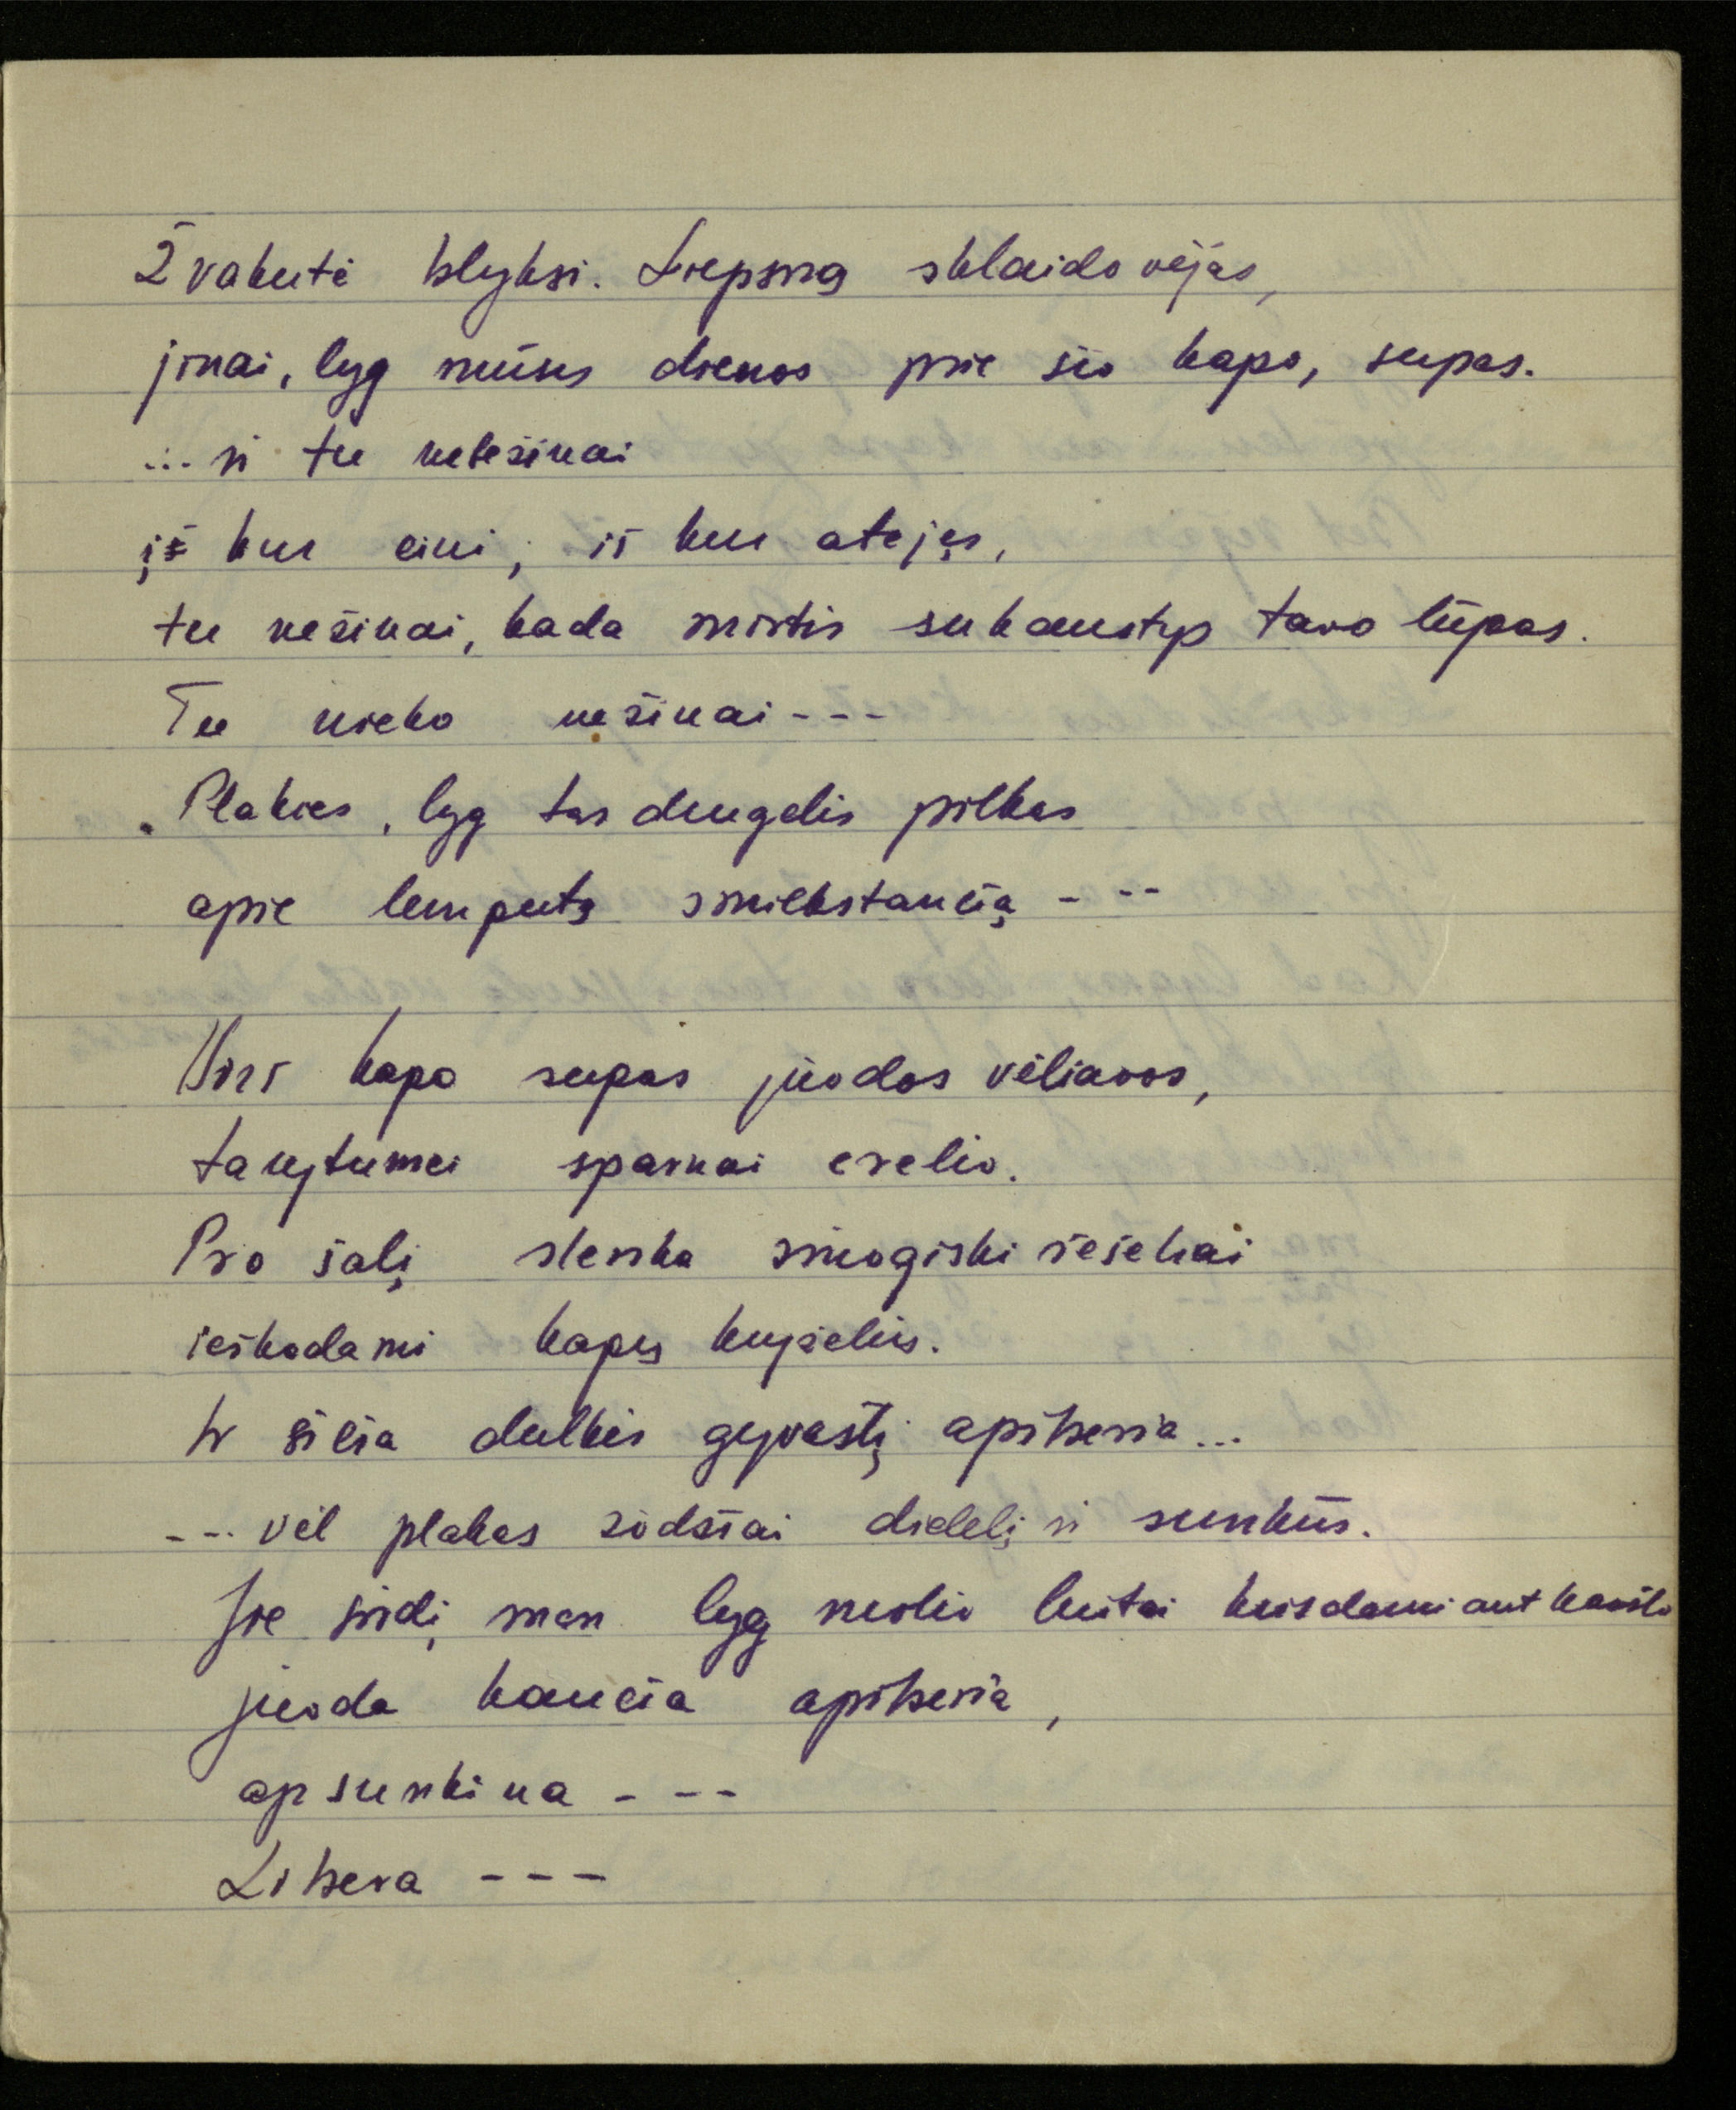 Žvakutė blyksi. Liepsną sklaido vėjas,
jinai, lyg mūsų dienos prie šio kapo, supas.
... ir tu nebežinai
iš kur eini, iš kur atėjęs,
tu nežinai, kada mirtis sukaustys tavo lūpas.
Tu nieko nežinai ---
Plakies, lyg tas drugelis pilkas
apie lemputę smilkstančią ---
Virš kapo supas juodos vėliavos,
tarytumei sparnai erelio.
Pro šalį slenka žmogiški šešėliai
ieškodami kapų kryželius.
Ir šičia dulkės gyvastį apiberia...
--- vėl plakas žodžiai dideli ir sunkūs.
Jie širdį man lyg molio luitai krisdami ant karsto
juoda kančia apiberia,
apsunkina ---
Libera ---